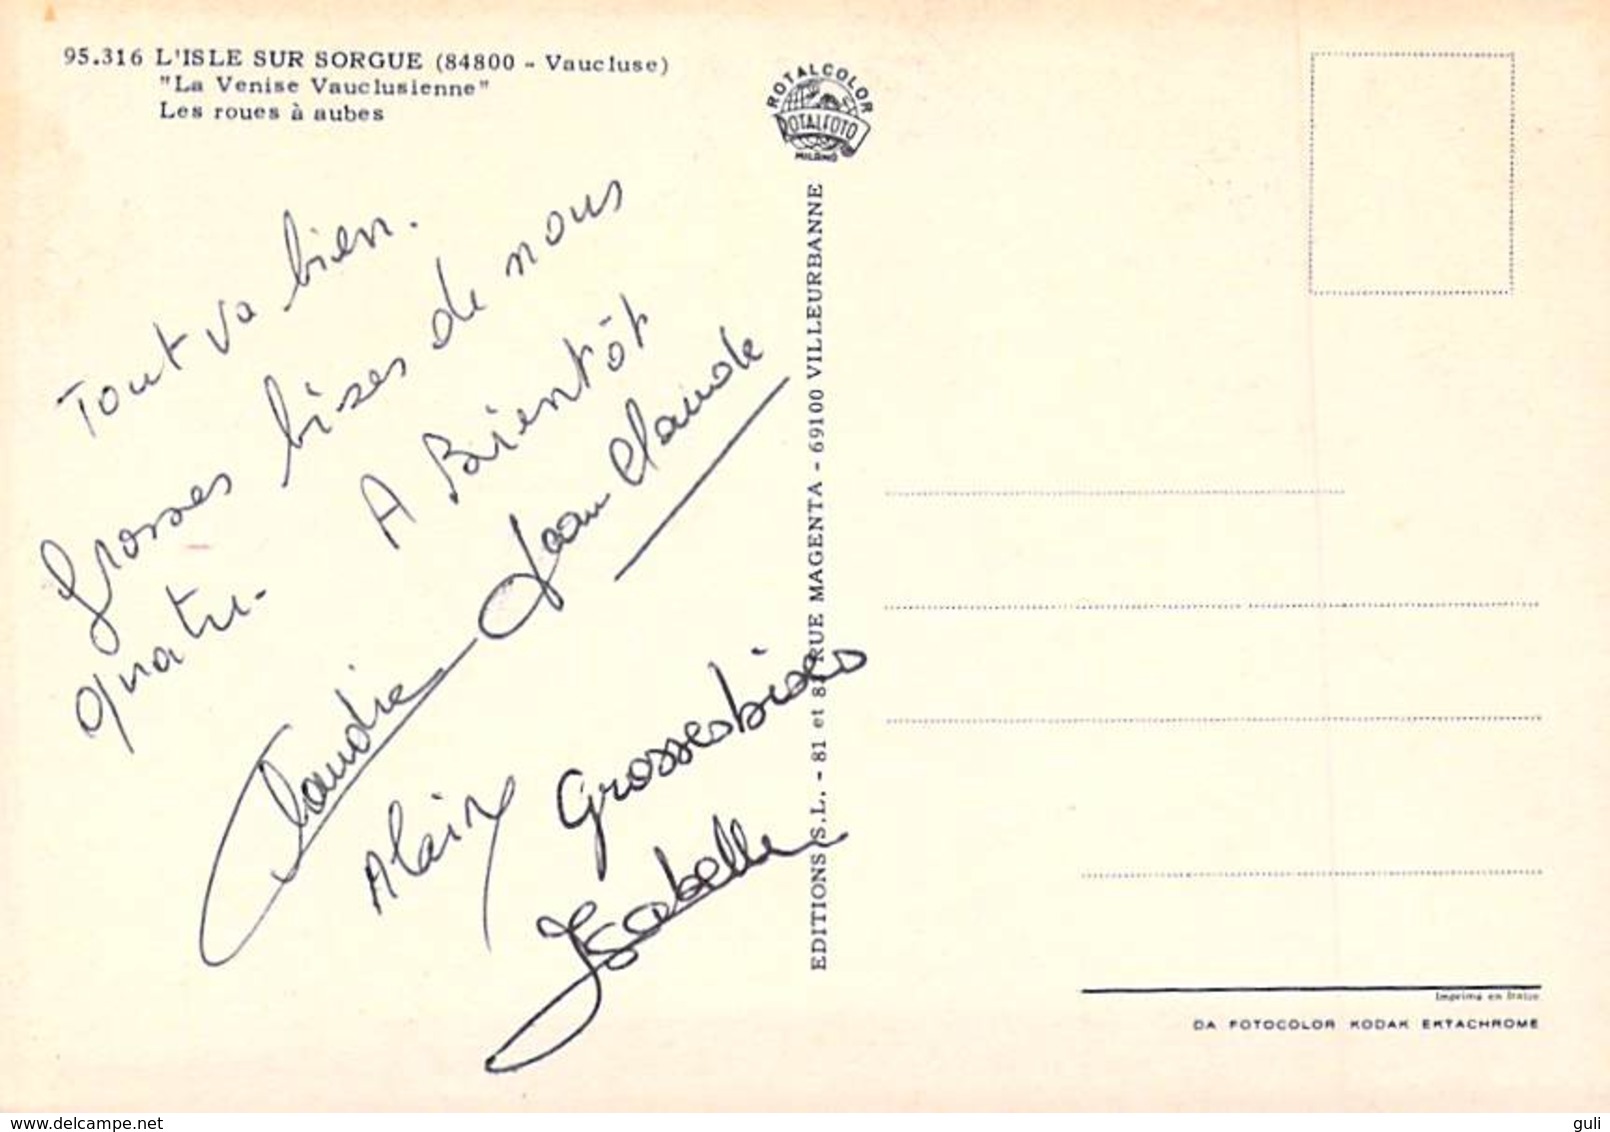 95.316 L'ISLE SUR SORGUE (84800 - Vaucluse)
"La Venise Vauclusienne"
Les roues à aubes
Tout va bien.
Grosses bises de nous
quatre. A Bientôt
Claudie Jean Claude
Alain Grosses bises
Isabelle
ROTALCOLOR
ROTALFOTO
MILANO
EDITIONS S.L. - 81 et 83 RUE MAGENTA - 69100 VILLEURBANNE
Imprimé en Italie
DA FOTOCOLOR KODAK EKTACHROME
www.delcampe.net
guli